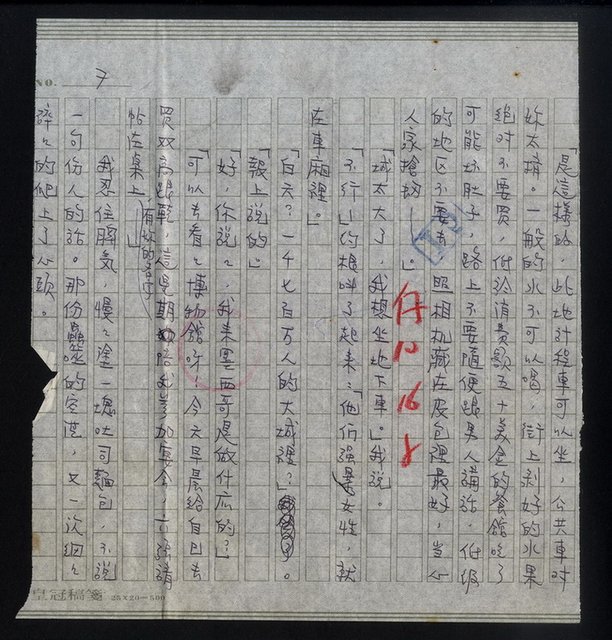 NO. 7
「是這樣的，此地計程車可以坐，公共車對
妳太擠。一般的水不可以喝，街上剥好的水果
絕对不要買，低於消費額五十美金的餐館吃了
可能坏肚子，路上不要隨便跟男人講話，低級
的地区不要去，照相机藏在皮包裡最好，當心
人家搶劫——。」
「城太大了，我想坐地下車。」我說。
「不行！」約根叫了起來：「他們强暴女性，就
在車廂裡。」
「白天？一千七百万人的大城裡？」
「報上說的。」
「好，你說说，我來墨西哥是做什広的？」
「可以去看看博物館呀，今天早晨給自己去
買双高跟鞋，這星期
參加宴会，
請
帖在桌上
有妳的名字
」
我忍住脾氣，慢慢塗一塊吐司麵包，不說
一句伤人的話。那份蟲噬的空茫，又一次細細
碎碎的爬上了心頭。
皇冠稿箋 25×20=500